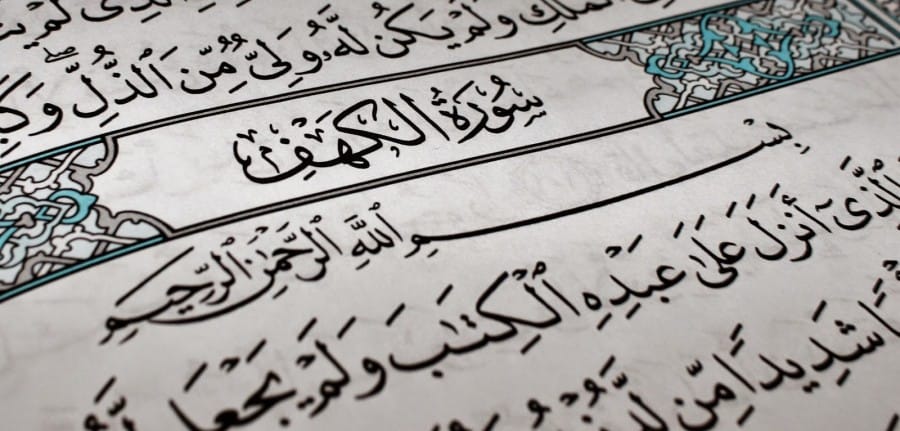 ٱلْمُلْكِ وَلَمْ يَكُن لَّهُۥ وَلِىٌّ مِّنَ ٱلذُّلِّ ۖ وَكَ
سُورَةُ الكَهْفِ
بِسْمِ ٱللَّهِ ٱلرَّحْمَٰنِ ٱلرَّحِيمِ
ٱلَّذِىٓ أَنزَلَ عَلَىٰ عَبْدِهِ ٱلْكِتَٰبَ وَلَمْ يَجْعَل
شَدِيدًا مِّن